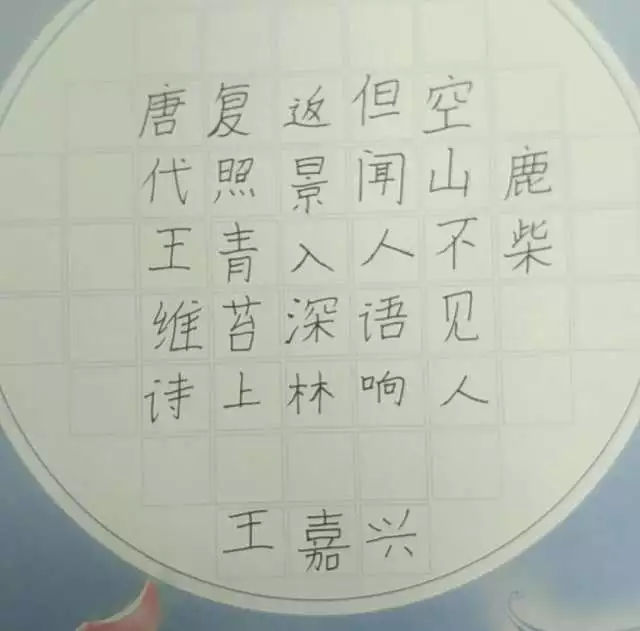 鹿柴
空山不见人
但闻人语响
返景入深林
复照青苔上
唐代王维诗
王嘉兴